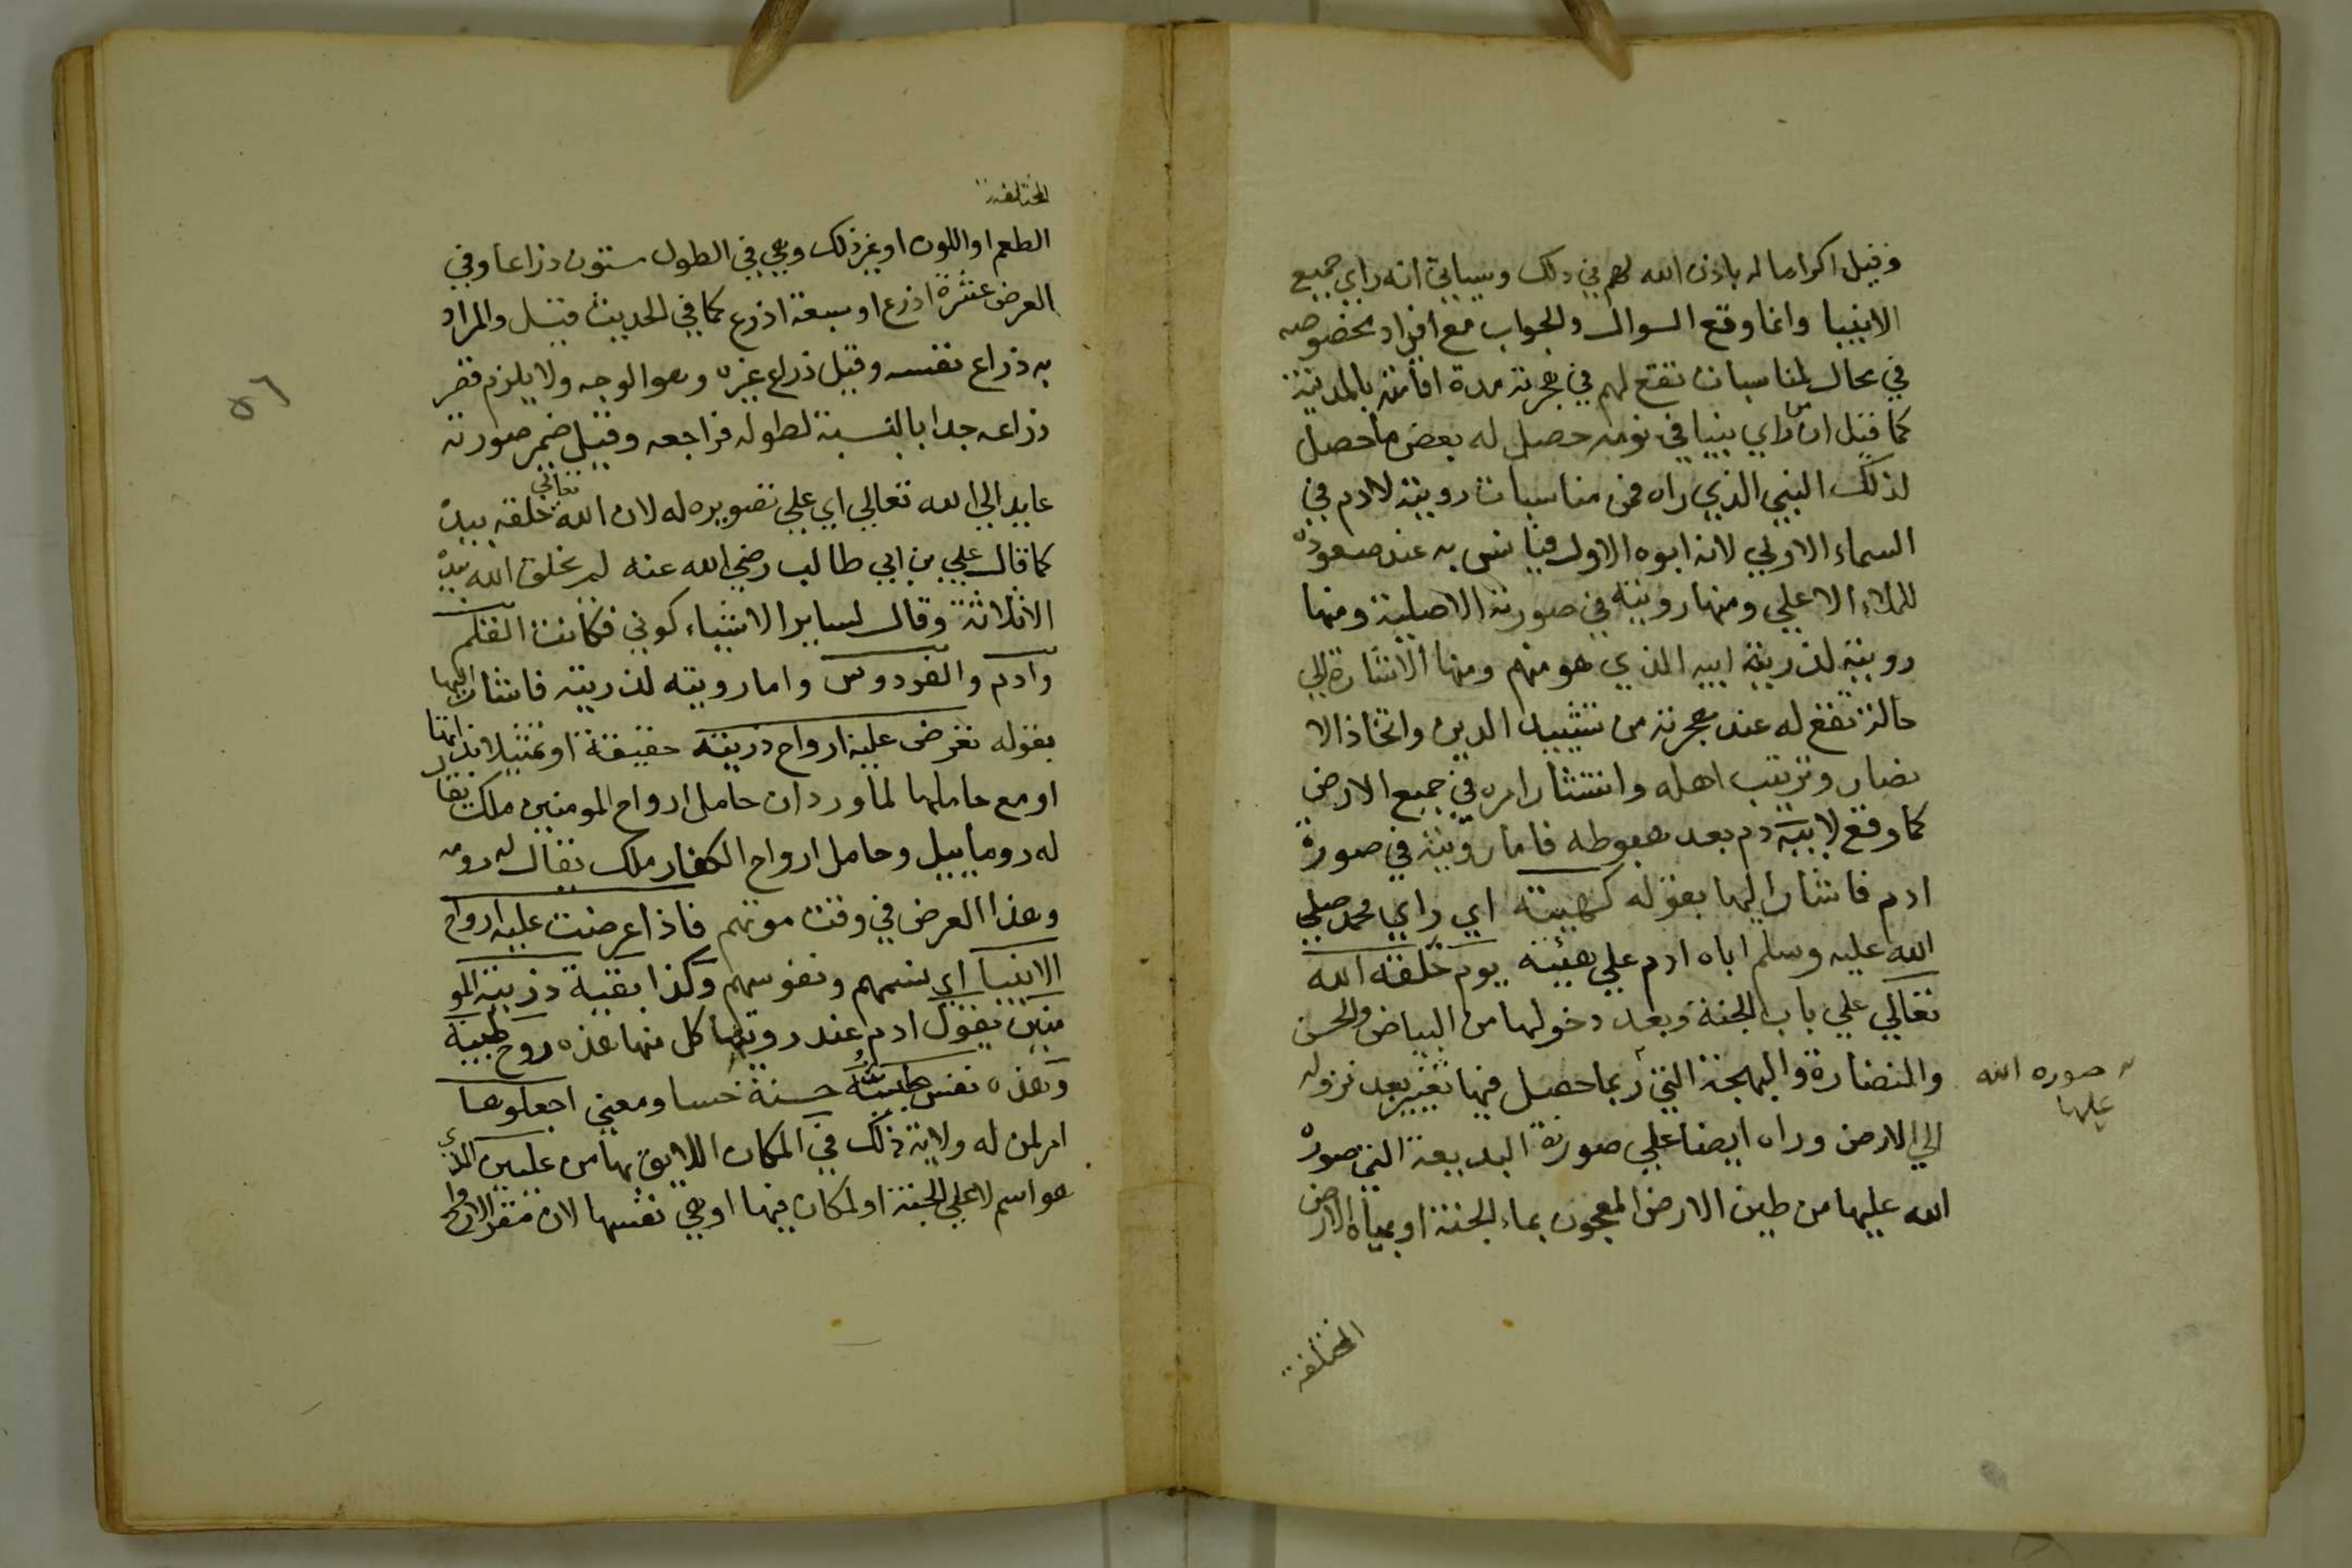 وقيل اكراما له باذن الله لهم في ذلك وسياتي انه راي جميع
الانبيا وانما وقع السوال والجواب مع افراد مخصوصه
في محال لمناسبات تقع لهم في هجرته مدة اقامته بالمدينة
كما قيل ان من راي نبيا في نومه حصل له بعض ما حصل
لذلك النبي الذي راه فمن مناسبات رويته لادم في
السماء الاولي لانه ابوه الاول فيانس به عند صعوده
للملاء الاعلي ومنها رويته في صورته الاصلية ومنها
رويته لذرية ابيه الذي هو منهم ومنها الاشارة الي
حالة تقع له عند هجرته من تشييد الدين واتخاذ الا
نصار وترتيب اهله وانتشار امره في جميع الارض
كما وقع لابيه دم بعد هبوطه فاما رويته في صورة
ادم فاشار اليها بقوله كهيئته اي راي محمد صلي
الله عليه وسلم اباه ادم علي هيئته يوم خلقه الله
تعالي علي باب الجنة وبعد دخولها من البياض والحسن
والنضارة والبهجة التي ربما حصل فيها تغيير بعد نزوله
الي الارض وراه ايضا علي صورته البديعة التي صوره
الله عليها من طين الارض المعجون بماء الجنة او بمياه الارض
صوره الله
عليها
المختلفة
المختلفة
الطعم او اللون او غير ذلك وهي في الطول ستون ذراعا وفي
العرض عشرة اذرع او سبعة اذرع كما في الحديث قيل والمراد
به ذراع نفسه وقيل ذراع غيره وهو الوجه ولا يلزم قصر
ذراعه جدا بالنسبة لطوله فراجعه وقيل ضمير صورته
عايد الي الله تعالي اي علي تصويره له لان الله تعالي خلقه بيده
كما قال علي بن ابي طالب رضي الله عنه لم يخلق الله بيده
الا ثلاثة وقال لساير الاشياء كوني فكانت القلم
وادم والفردوس واما رويته لذريته فاشار اليها
بقوله تعرض عليه ارواح ذريته حقيقة او تمثيلا
او مع حاملها لما ورد ان حامل ارواح المومنين ملك يقا
له روماييل وحامل ارواح الكفار ملك يقال له دومه
وهذا العرض في وقت موتهم فاذا عرضت عليه ارواح
الانبيا اي نسمهم ونفوسهم وكذا بقية ذريته المو
منين يقول ادم عند رويتها كل منها هذه روح طيبة
وهذه نفس طيبة حسنة حسا ومعني اجعلوها
امر لمن له ولاية ذلك في المكان اللايق بها من عليين الذي
هو اسم لاعلي الجنة او لمكان فيها او هي نفسها لان مقر الارواح
٥٦